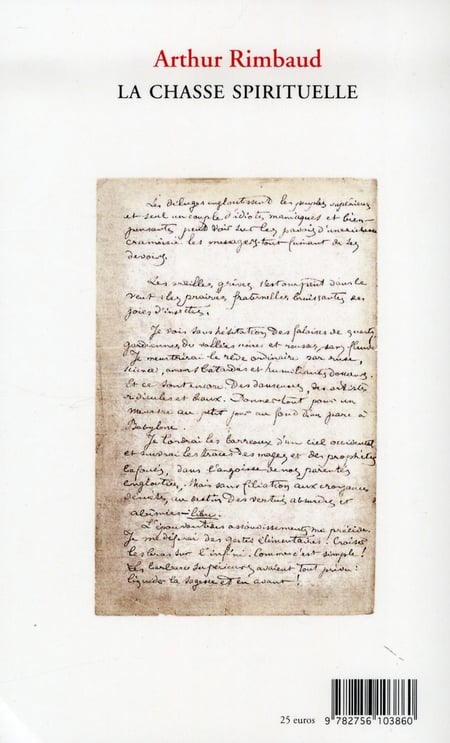 Arthur Rimbaud
LA CHASSE SPIRITUELLE
Les déluges engloutissent les peuples supérieurs
et seul un couple d'idiots, maniaques et bien-
pensants, peut voir sur les parois d'une
les messages tout fumant de ses
devoirs.
Les vieilles grèves s'estompent dans le
vent & les prairies fraternelles bruissantes des
joies d'insectes.
Je vois sans hésitation des falaises de quartz
gardiennes de vallées noires et rousses, sans fleuve
Je meurtrirai le rêve ordinaire par ruse,
science, amours bafoués et humiliants
Et ce sont encore des danseuses, des
ridicules et beaux. Donner tout pour un
meurtre au petit jour au fond d'un parc à
Babylone.
Je tordrai les barreaux d'un ciel occidental
et suivrai les traces des mages et des prophètes
bafoués, dans l'angoisse de nos parentés
englouties. Mais sans filiation aux croyances
un destin des vertus absurdes et
abîmées
me précède.
Je me déferai des gestes élémentaires : Croiser
les bras sur l'infini. Comme c'est simple !
Les barbares supérieurs avaient tout prévu :
liquider la sagesse et en avant !
25 euros
9 782756 103860